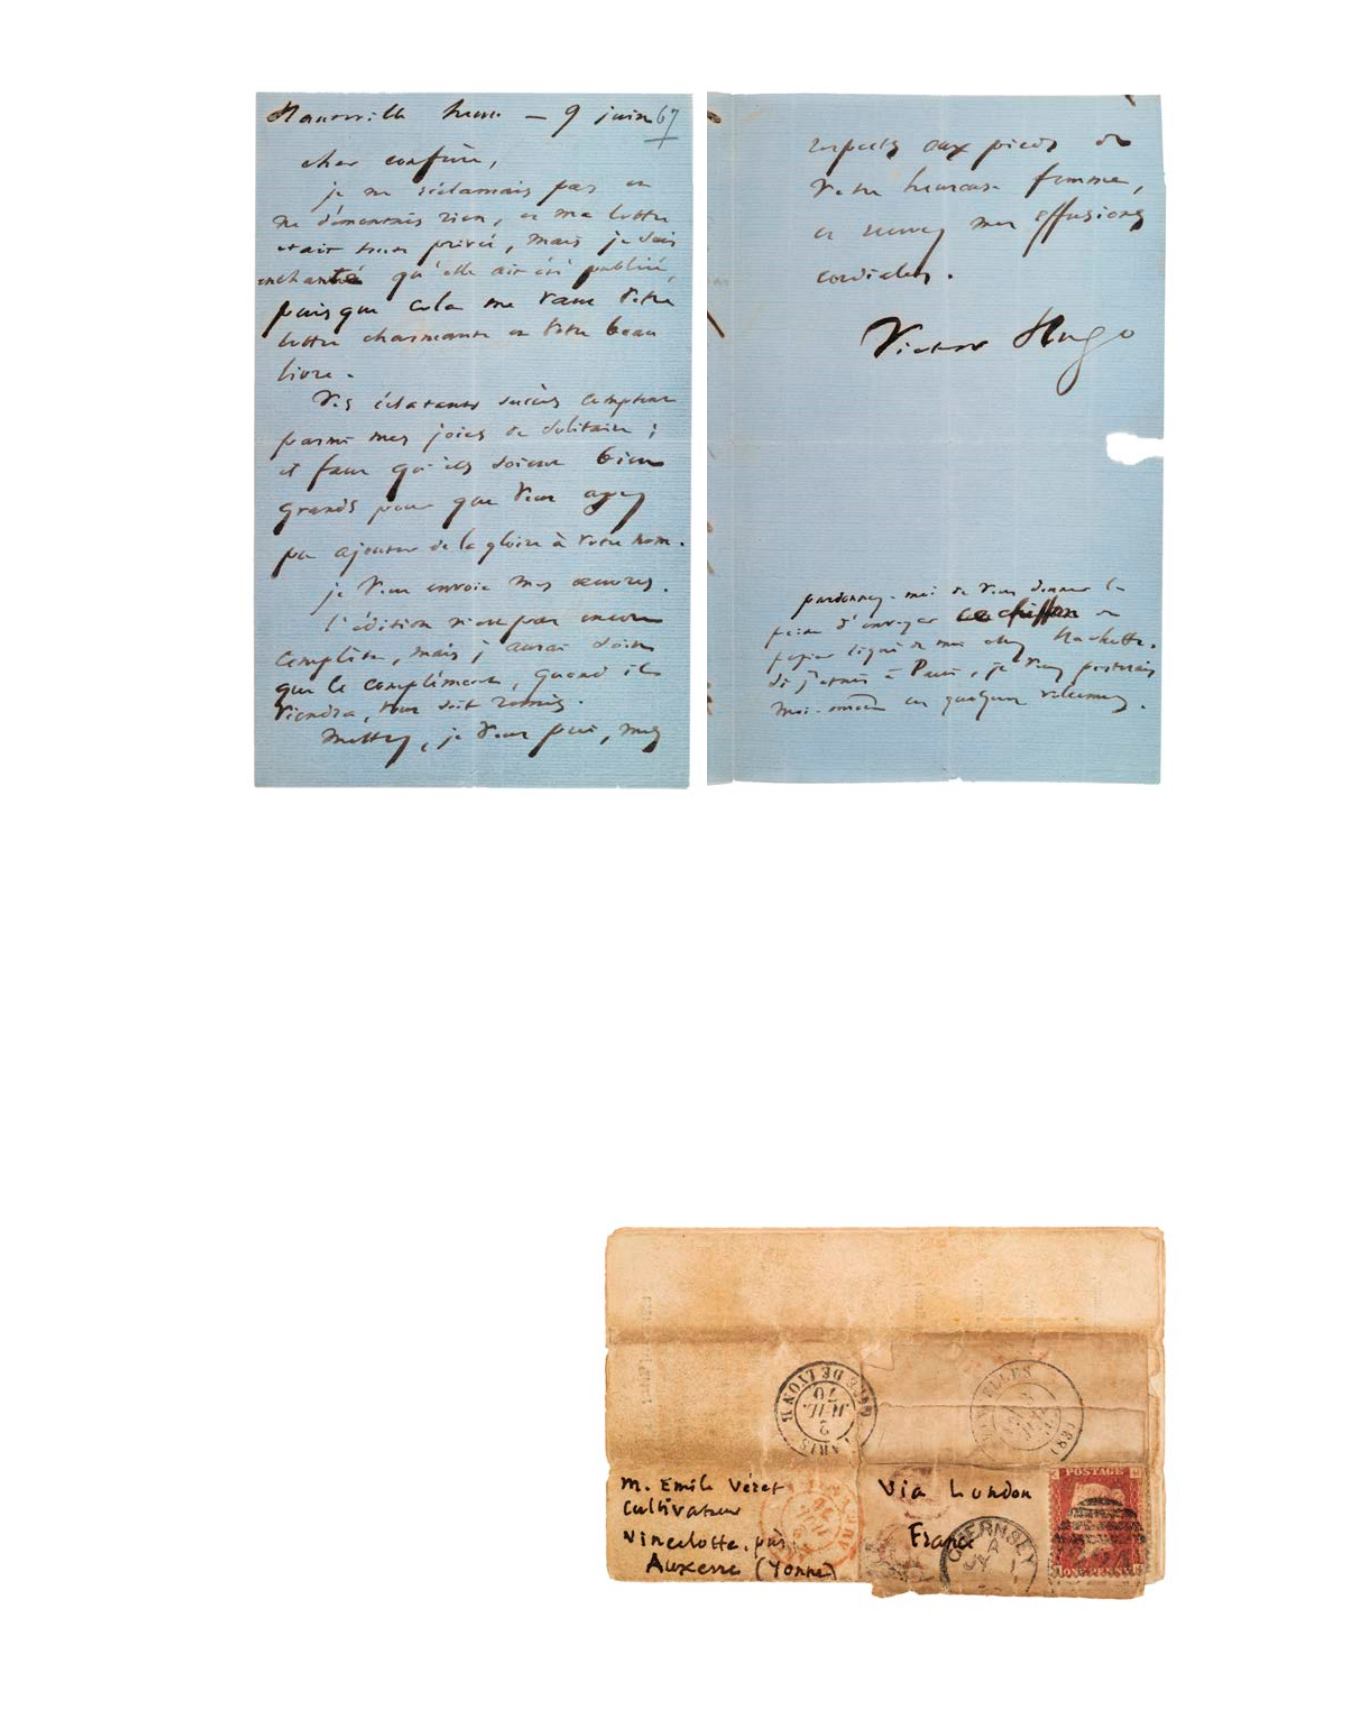 Hauteville house — 9 juin 67
cher confrère,
je ne réclamais pas et
ne démentais rien, et ma lettre
était toute privée, mais je suis
enchanté qu'elle ait été publiée,
puisque cela me vaut votre
lettre charmante et votre beau
livre.
Vos éclatants succès comptent
parmi mes joies de solitaire ;
il faut qu'ils soient bien
grands pour que vous ayez
pu ajouter de la gloire à votre nom.
je vous envoie mes œuvres.
l'édition n'est pas encore
complète, mais j'aurai soin
que le complément, quand il
viendra, vous soit remis.
Mettez, je vous prie, mes
respects aux pieds de
votre heureuse femme,
et recevez mes effusions
cordiales.
Victor Hugo
pardonnez-moi de vous donner la
peine d'envoyer ce chiffon de
papier signé de moi chez Hachette.
Si j'étais à Paris, je vous porterais
moi-même ces quelques volumes.
GARE DE LYON
PARIS
2
JUIL.
70
M. Emile Véret
Cultivateur
Vincelotte, près
Auxerre (Yonne)
Via London
France
GUERNSEY
A
JY 1
POSTAGE
ONE PENNY